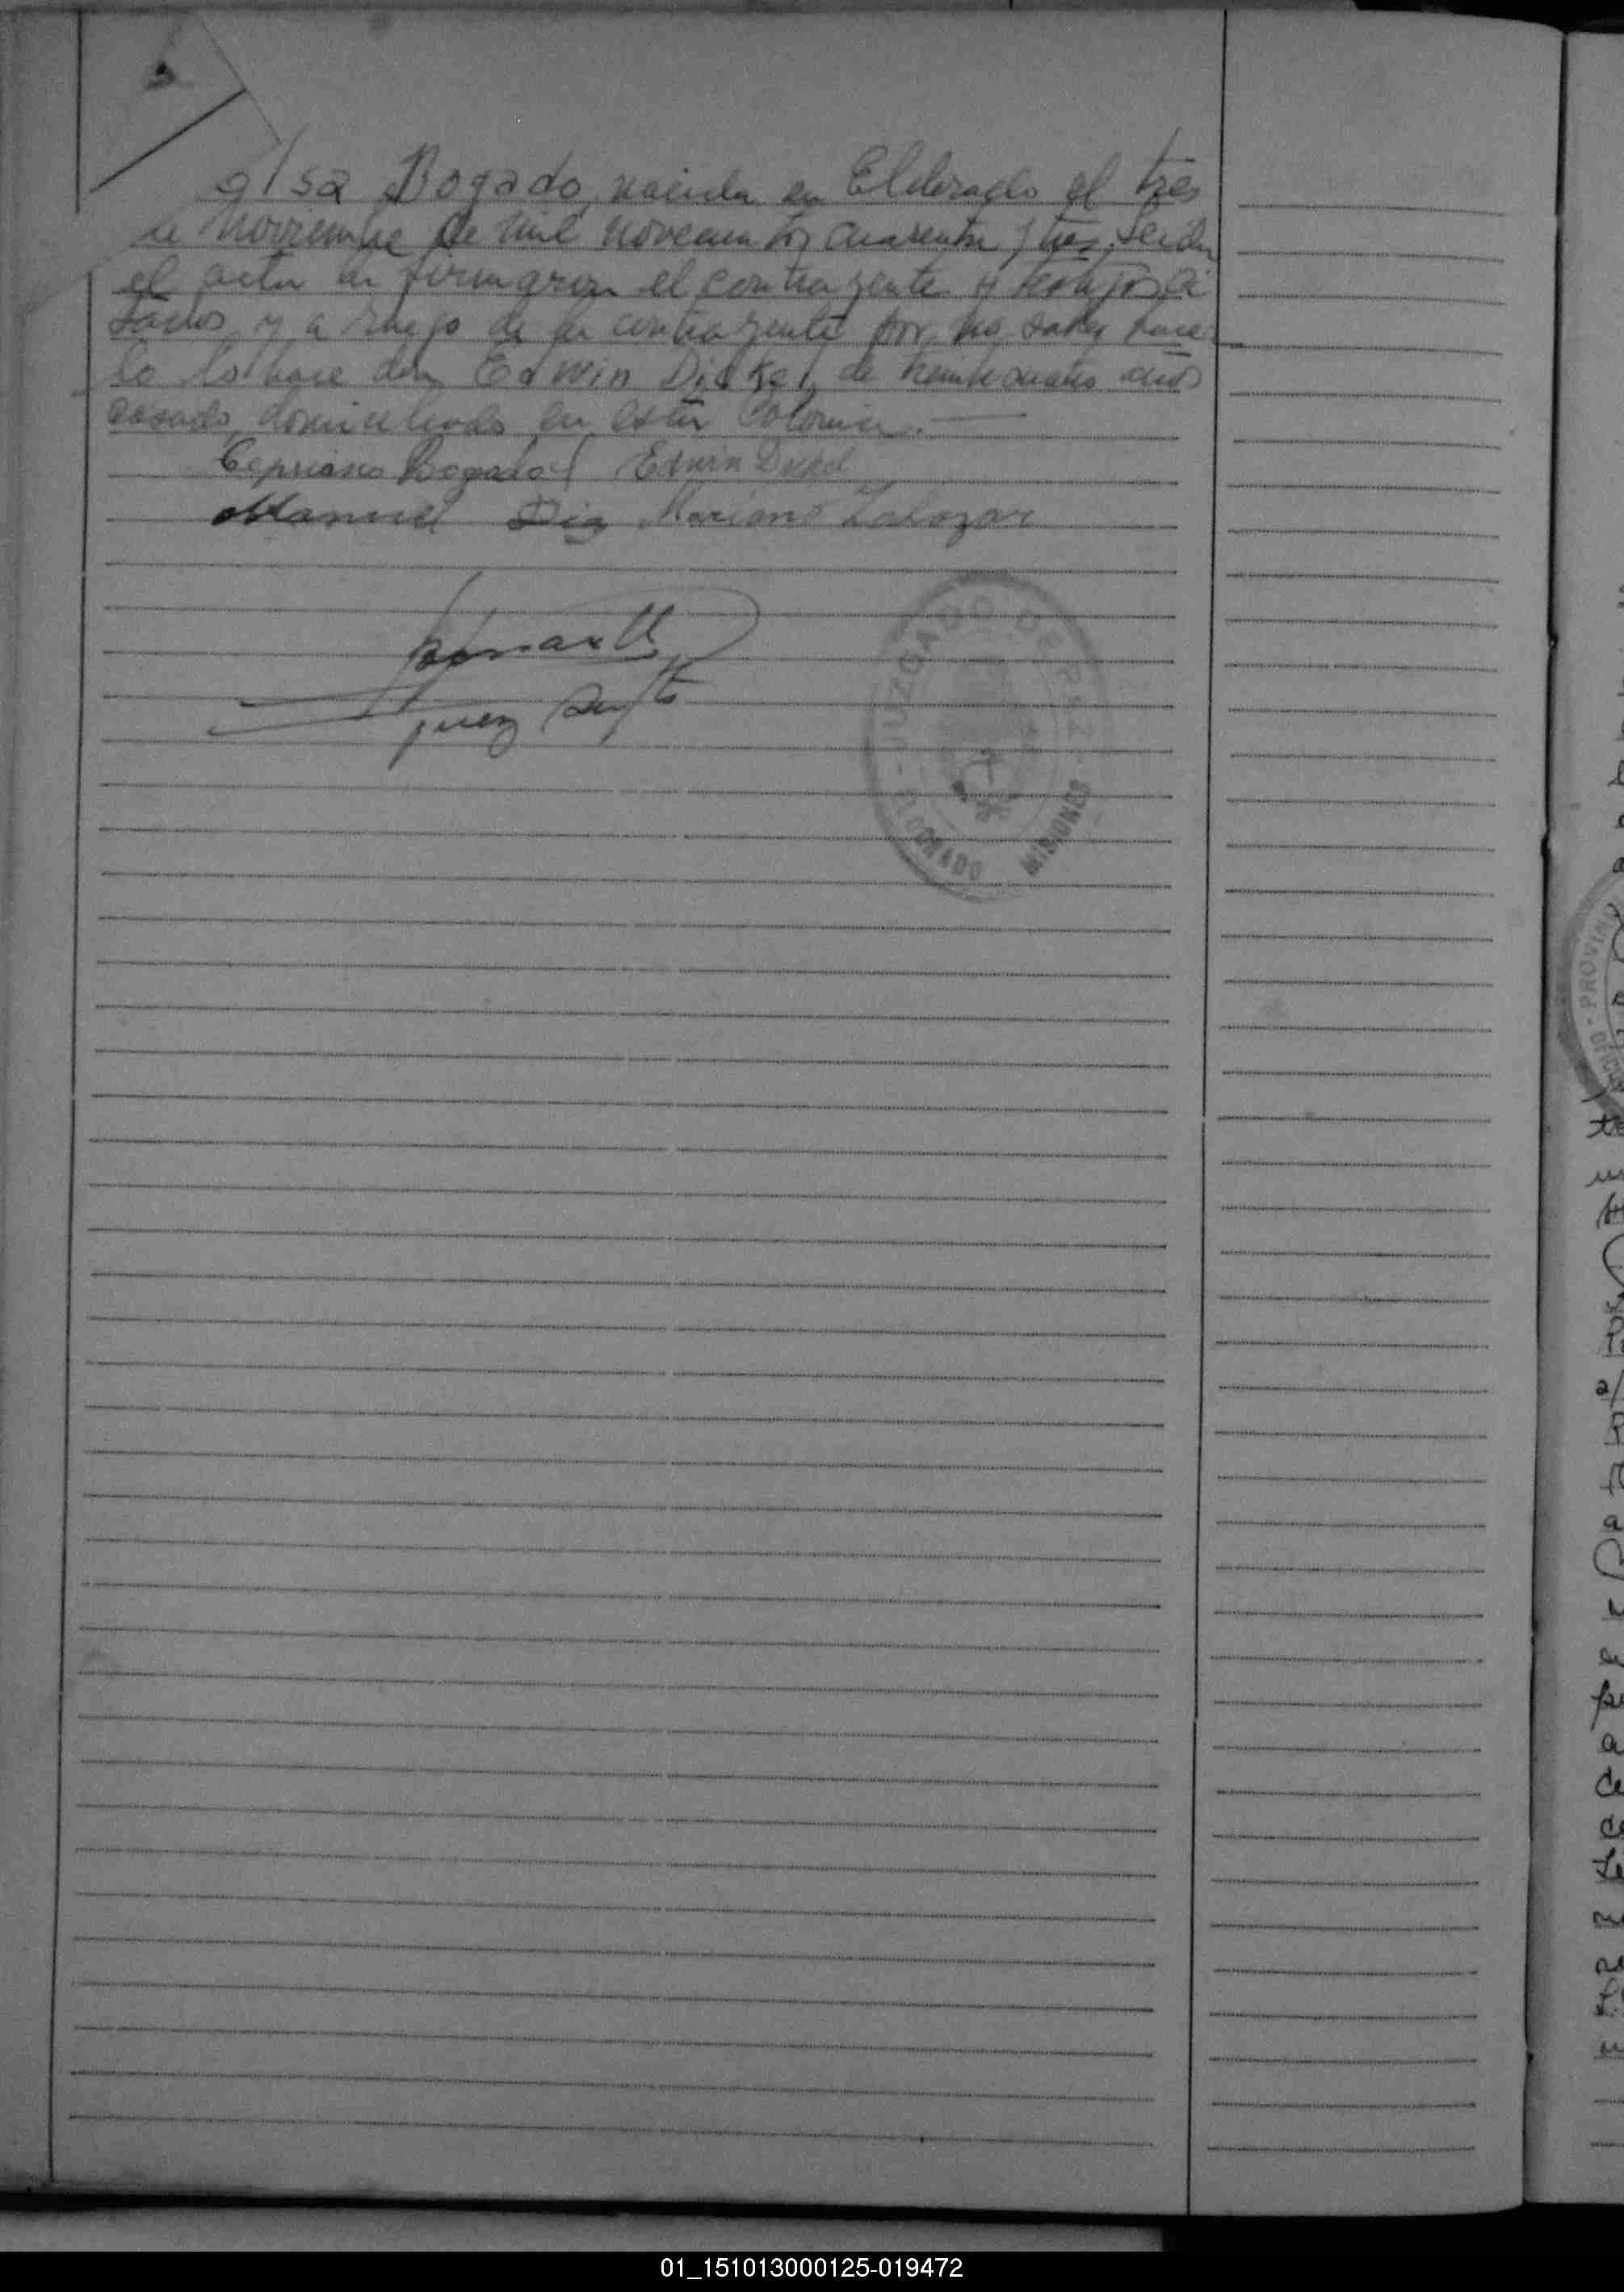 Elsa Bogado, nacida en Eldorado el tres
de Noviembre de mil novecientos cuarenta y tres. Leida
el acta la firmaron el contrayente y testigos ci
tados y a ruego de la contrayente por no saber hacer
lo lo hace don Edwin Dickel, de treinta años
casado, domiciliado en esta Colonia.—
Cipriano Bogado Edwin Dickel
Manuel Diaz Mariano Zalazar
Juez Supte
JUZGADO DE PAZ
ELDORADO MISIONES
PROVINC
01_151013000125-019472